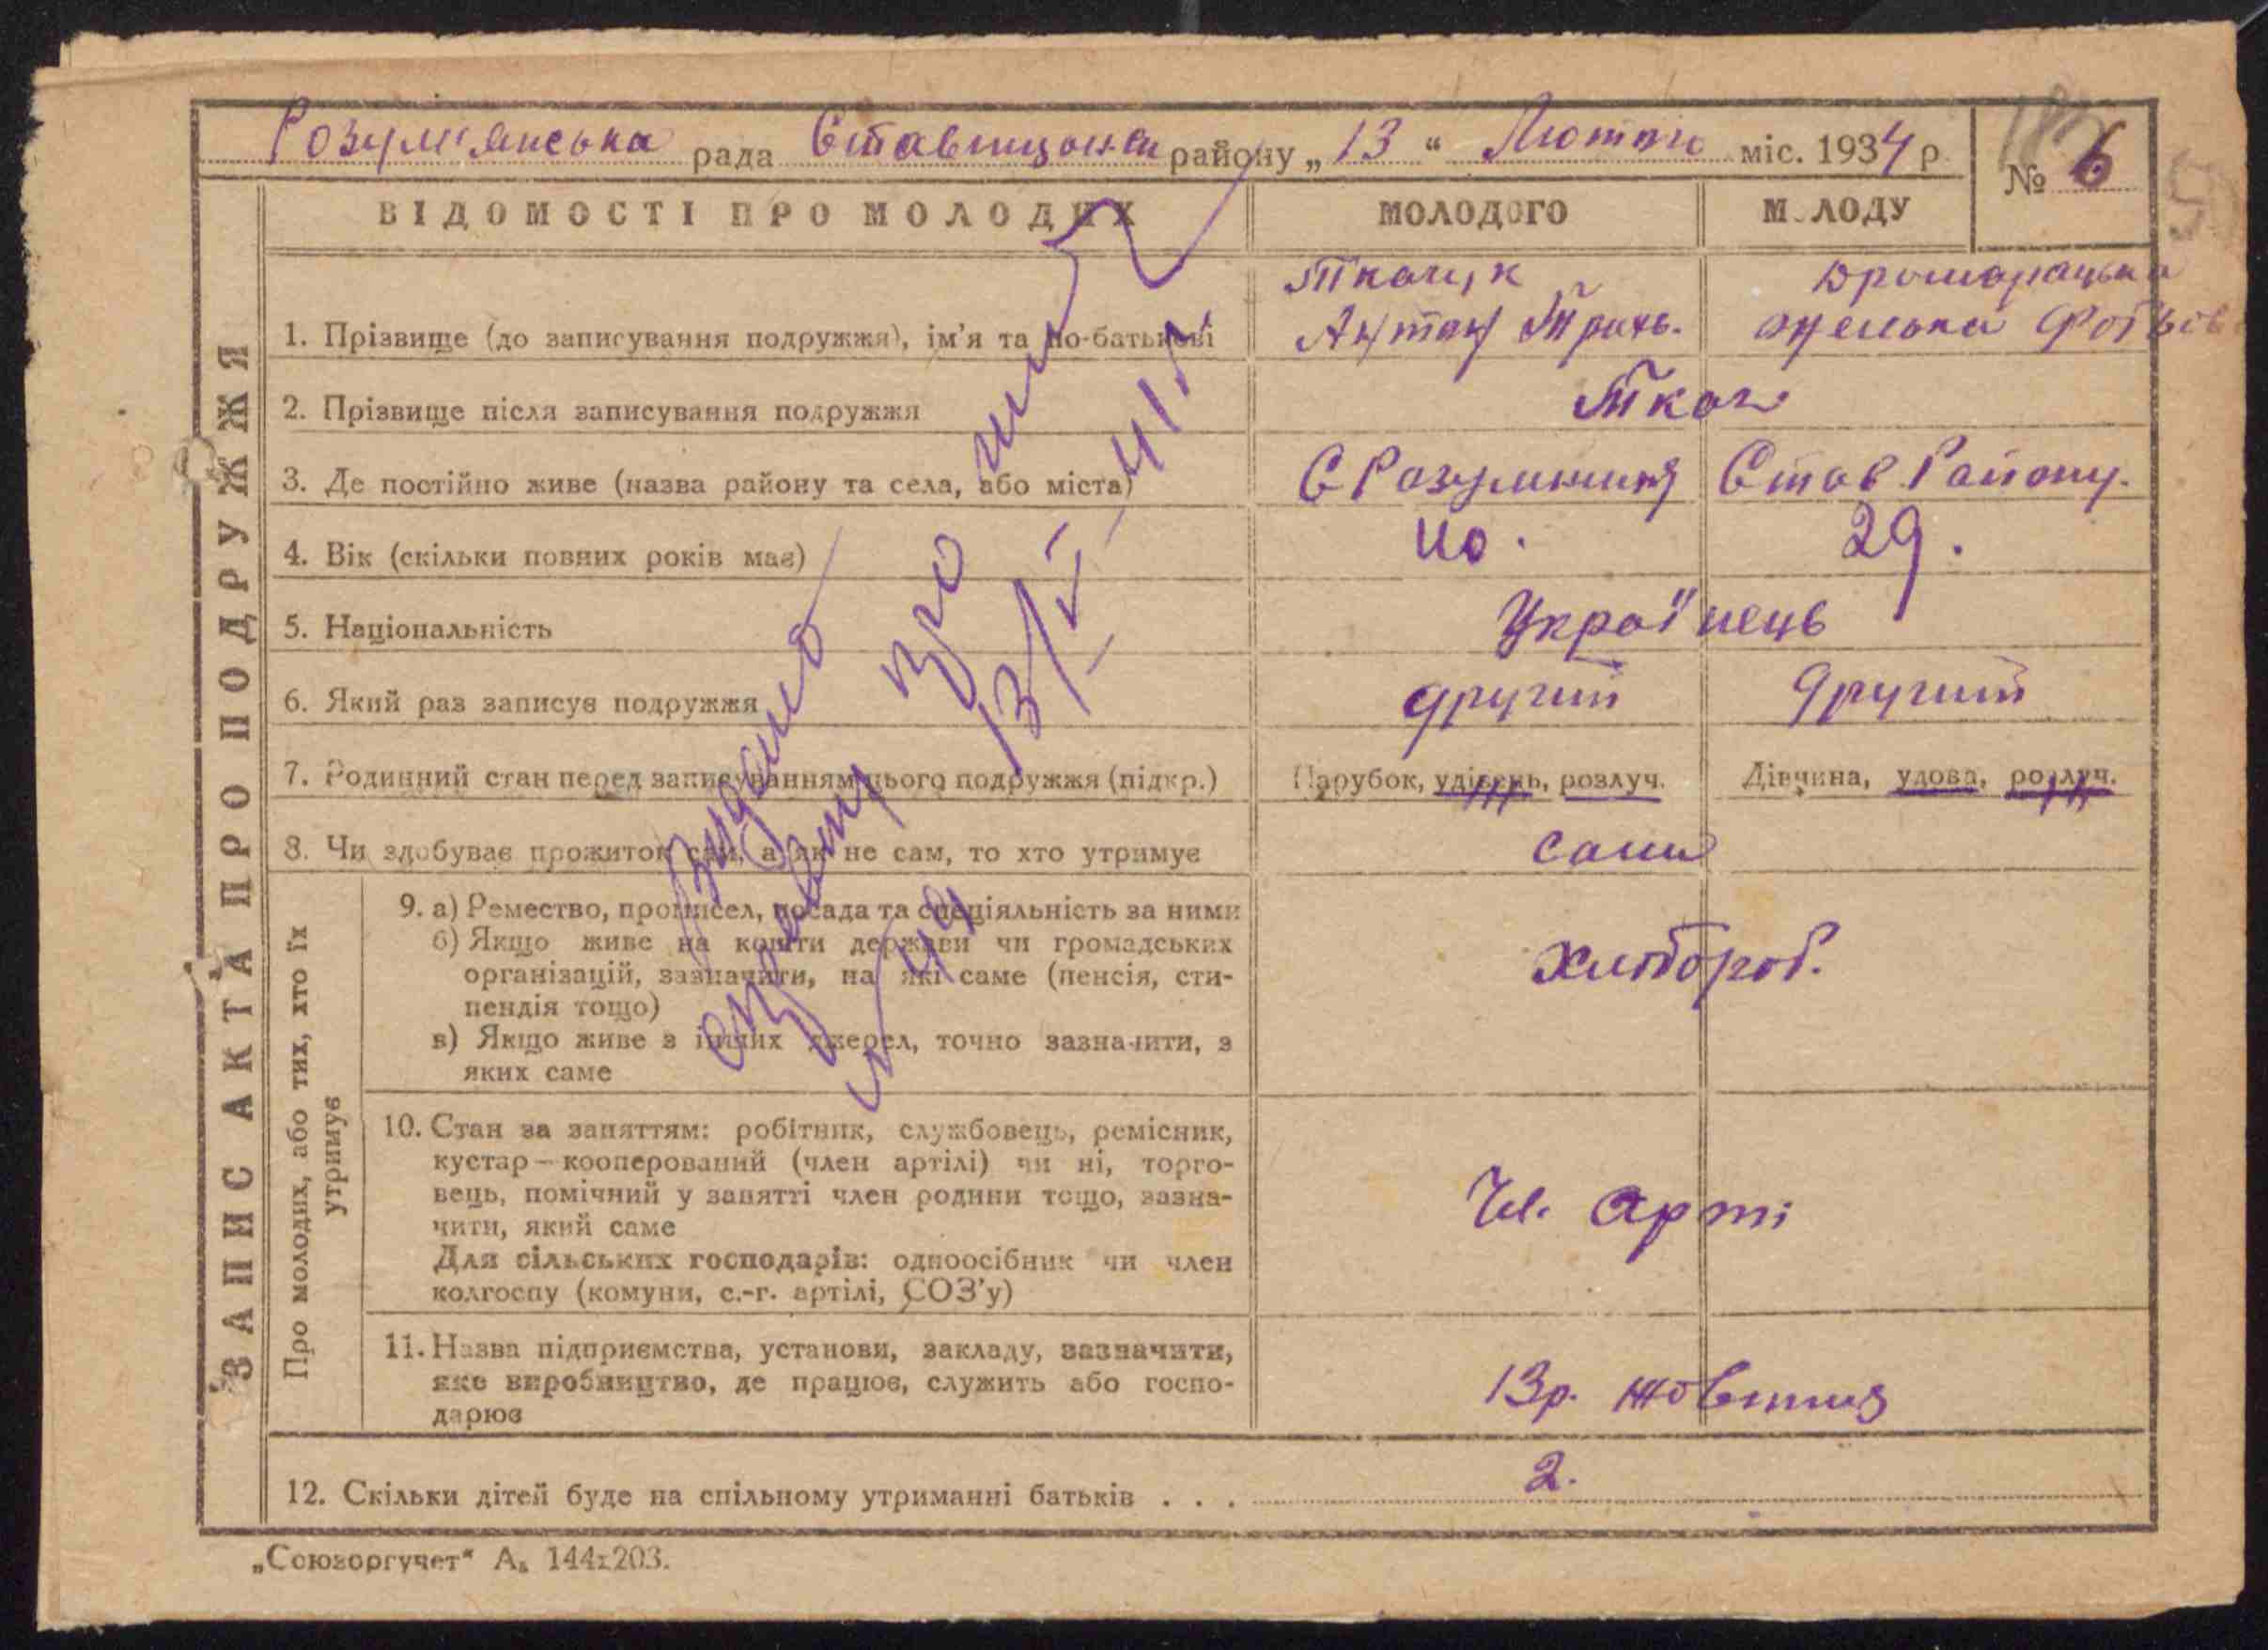 Розумʼянська рада Ставищан район̣у „ 13 “ Лютого міс. 1934 р.
№ 6
ВІДОМОСТІ ПРО МОЛОДИХ МОЛОДОГО МОЛОДУ
ЗАПИС АКТА ПРО ПОДРУЖЖЯ
1. Прізвище (до записування подружжя), ім'я та по-батькові
Ткачук
Антон
2. Прізвище після записування подружжя Ткач
3. Де постійно живе (назва району та села, або міста) С Розумниця Став. Району.
4. Вік (скільки повних років має) 40. 29.
5. Національність Українець
6. Який раз записує подружжя другий другий
7. Родинний стан перед записуванням цього подружжя (підкр.) Парубок, удівець, розлуч. Дівчина, удова, розлуч.
8. Чи здобуває прожиток сам, а як не сам, то хто утримує сами
Про молодих, або тих, хто їх утримує
9. а) Ремество, промисел, посада та спеціяльність за ними
б) Якщо живе на кошти держави чи громадських
організацій, зазначити, на які саме (пенсія, сти-
пендія тощо)
в) Якщо живе з інших джерел, точно зазначити, з
яких саме
хлібороб.
10. Стан за заняттям: робітник, службовець, ремісник,
кустар – кооперований (член артілі) чи ні, торго-
вець, помічний у занятті член родини тощо, зазна-
чити, який саме
Для сільських господарів: одноосібник чи член
колгоспу (комуни, с.-г. артілі, СОЗ'у)
Чл. арті
11. Назва підприємства, установи, закладу, зазначити,
яке виробництво, де працює, служить або госпо-
дарює
13р. жовтня
12. Скільки дітей буде на спільному утриманні батьків . . . 2.
Видано
№ 49
„Союзоргучет“ А₅ 144х203.